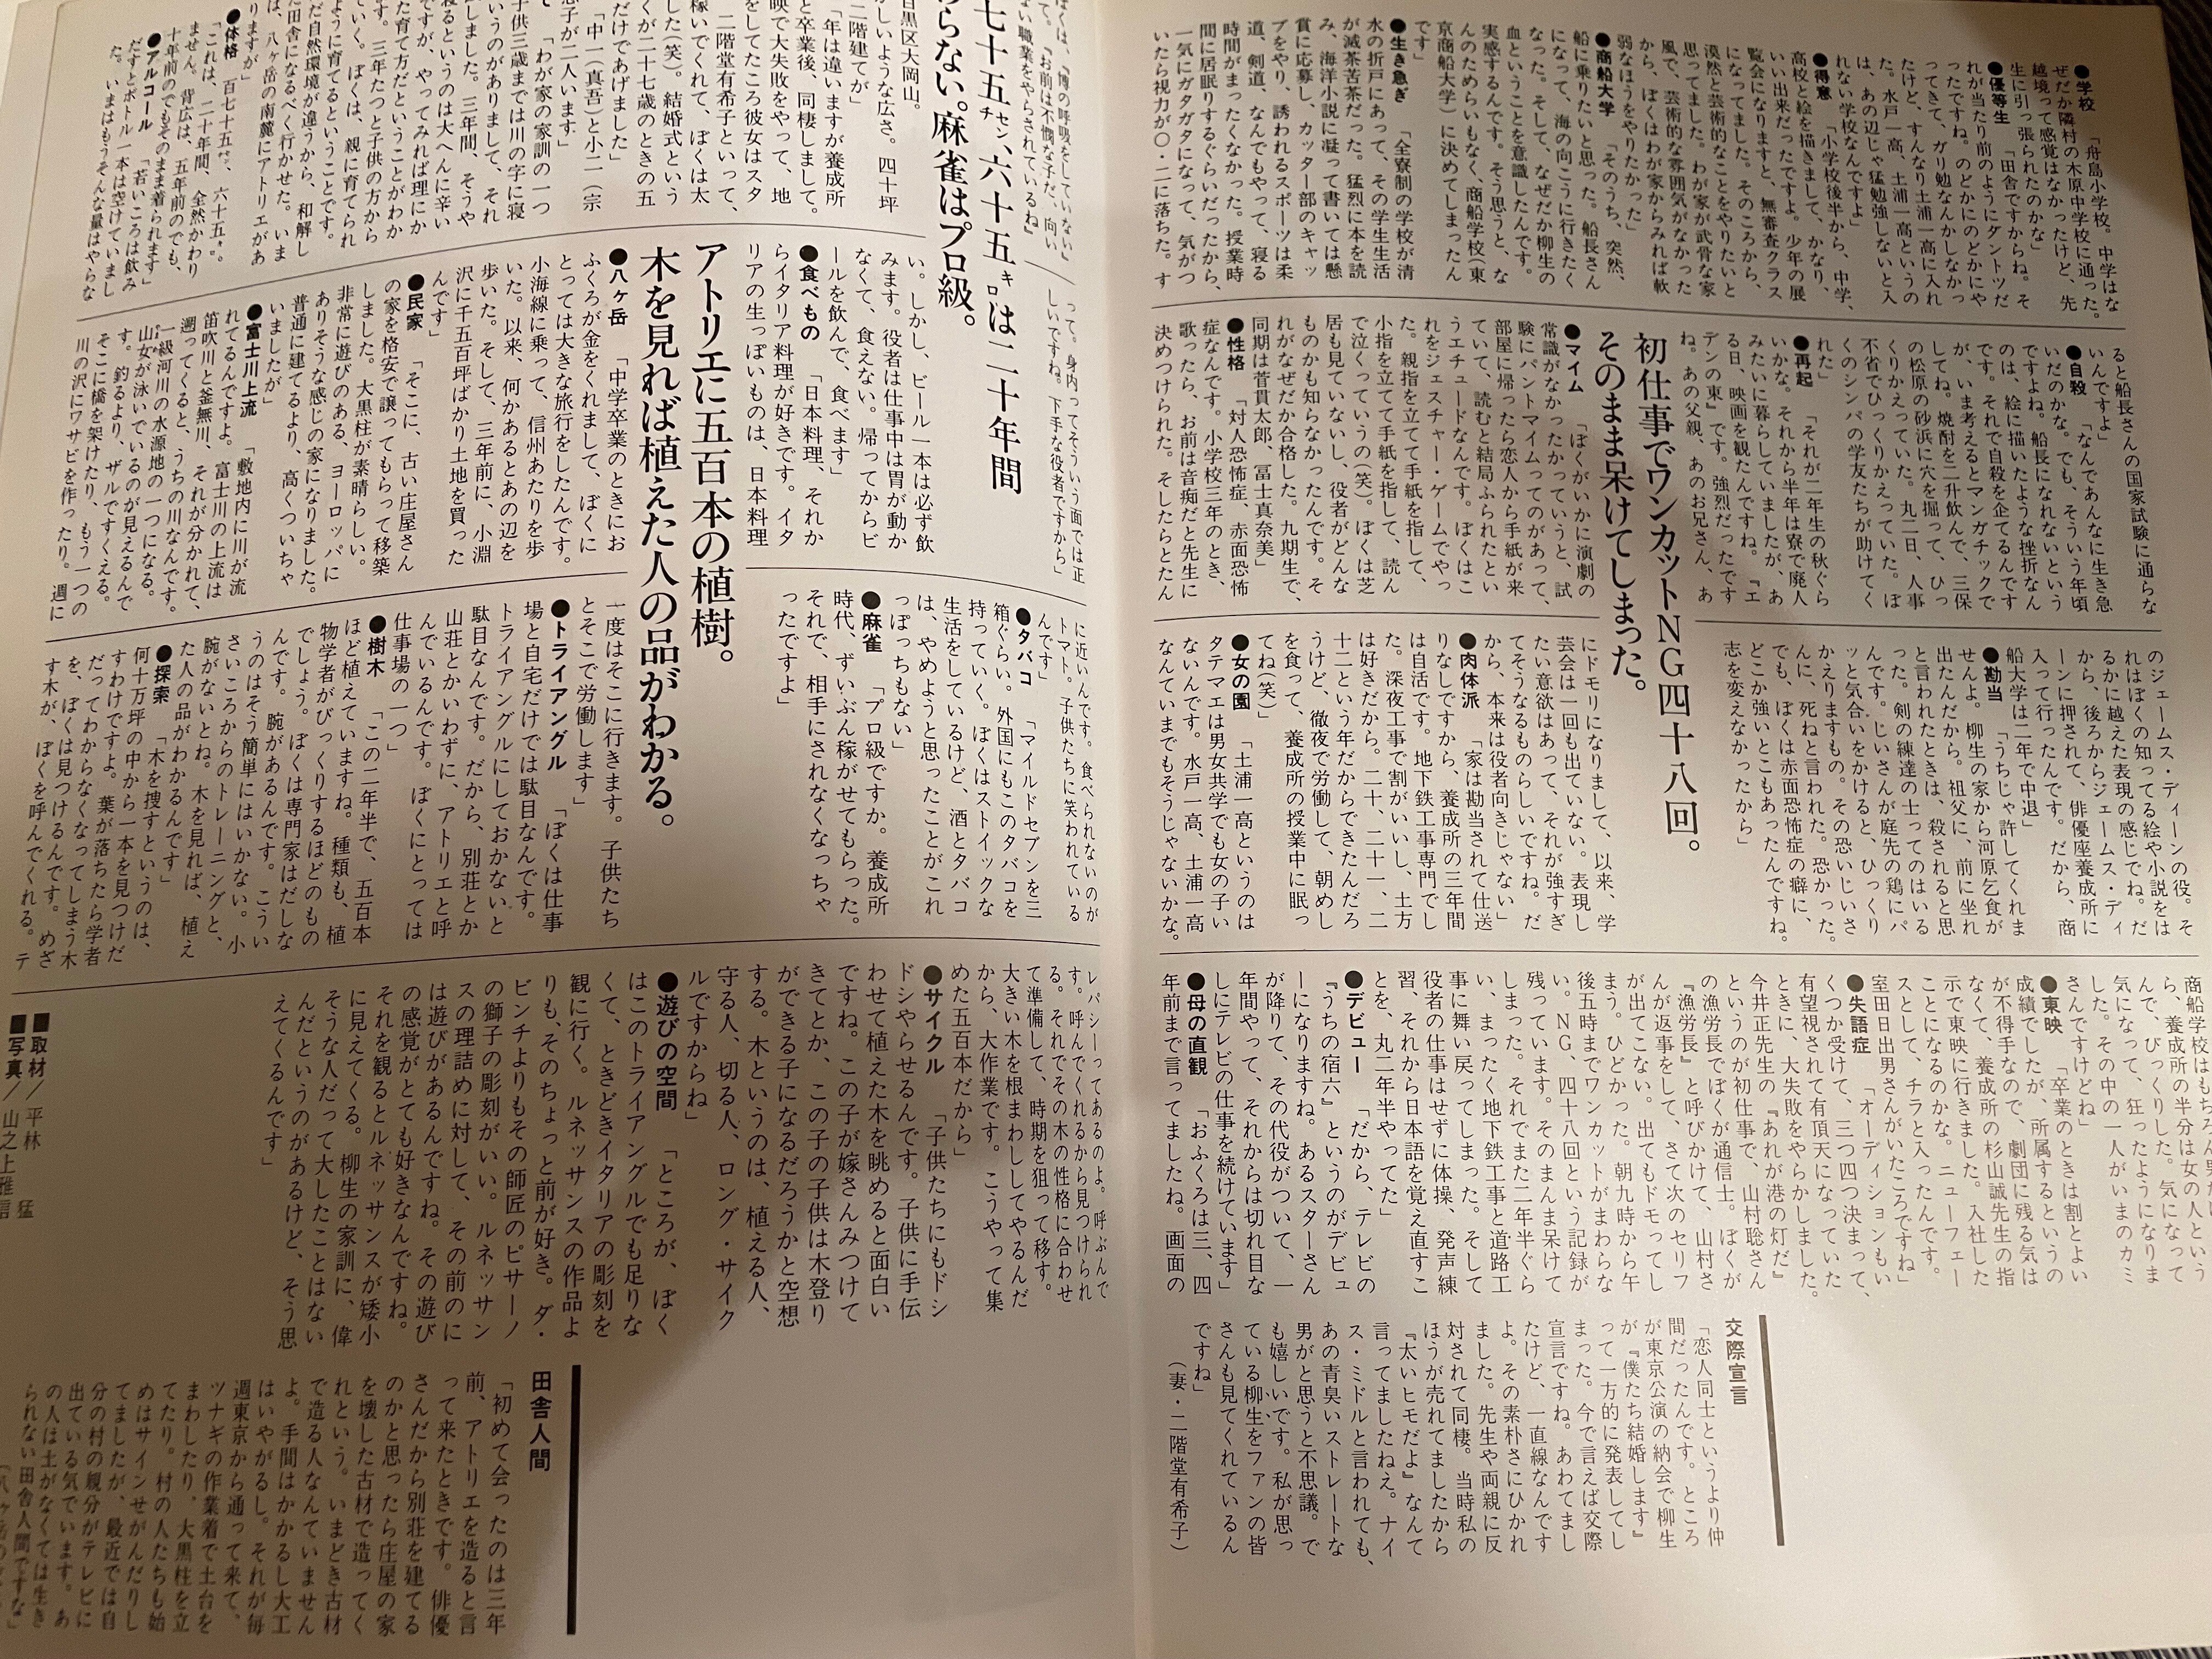 ●学校　「舟島小学校。中学はな
ぜだか隣村の木原中学校に通った。
越境って感覚はなかったけど、先
生に引っ張られたのかな」
●優等生　「田舎ですからね。そ
れが当たり前のようにダントツだ
ったですね。のどかにのどかにや
ってきて、ガリ勉なんかしなかっ
たけど、すんなり土浦一高に入れ
た。水戸一高、土浦一高というの
は、あの辺じゃ猛勉強しないと入
れない学校なんですよ」
●得意　「小学校後半から、中学、
高校と絵を描きまして、かなり、
いい出来だったですよ。少年の展
覧会になりますと、無審査クラス
になってました。そのころから、
漠然と芸術的なことをやりたいと
思ってました。わが家が武骨な家
風で、芸術的な雰囲気がなかった
から、ぼくはわが家からみれば軟
弱なほうをやりたかった」
●商船大学　「そのうち、突然、
船に乗りたいと思った。船長さん
になって、海の向こうに行きたく
なった。そして、なぜだか柳生の
血ということを意識したんです。
実感するんです。そう思うと、な
んのためらいもなく、商船学校（東
京商船大学）に決めてしまったん
です」
●生き急ぎ　「全寮制の学校が清
水の折戸にあって、その学生生活
が滅茶苦茶だった。猛烈に本を読
み、海洋小説に凝って書いては懸
賞に応募し、カッター部のキャッ
プをやり、誘われるスポーツは柔
道、剣道、なんでもやって、寝る
時間がまったくなかった。授業時
間に居眠りするぐらいだったから、
一気にガタガタになって、気がつ
いたら視力が〇・二に落ちた。す
ると船長さんの国家試験に通らな
いんですよ」
●自殺　「なんであんなに生き急
いだのかな。でも、そういう年頃
ですよね。船長になれないという
のは、絵に描いたような挫折なん
です。それで自殺を企てるんです
が、いま考えるとマンガチックで
してね。焼酎を二升飲んで、三保
の松原の砂浜に穴を掘って、ひっ
くりかえっていた。丸二日、人事
不省でひっくりかえっていた。ぼ
くのシンパの学友たちが助けてく
れた」
●再起　「それが二年生の秋ぐら
いかな。それから半年は寮で廃人
みたいに暮らしていましたが、あ
る日、映画を観たんですね。『エ
デンの東』です。強烈だったです
ね。あの父親、あのお兄さん、あ
初仕事でワンカットNG四十八回。
そのまま呆けてしまった。
●マイム　「ぼくがいかに演劇の
常識がなかったかっていうと、試
験にパントマイムってのがあって、
部屋に帰ったら恋人から手紙が来
ていて、読むと結局ふられたとい
うエチュードなんです。ぼくはこ
れをジェスチャー・ゲームでやっ
た。親指を立てて手紙を指して、
小指を立てて手紙を指して、読ん
で泣くっていうの（笑）。ぼくは芝
居も見ていないし、役者がどんな
ものかも知らなかったんです。そ
れがなぜだか合格した。九期生で、
同期は菅貫太郎、冨士真奈美」
●性格　「対人恐怖症、赤面恐怖
症なんです。小学校三年のとき、
歌ったら、お前は音痴だと先生に
決めつけられた。そしたらとたん
のジェームス・ディーンの役。そ
れはぼくの知ってる絵や小説をは
るかに越えた表現の感じでね。だ
から、後ろからジェームス・ディ
ーンに押されて、俳優座養成所に
入って行ったんです。だから、商
船大学は二年で中退」
●勘当　「うちじゃ許してくれま
せんよ。柳生の家から河原乞食が
出たんだから。祖父に、前に坐れ
と言われたときは、殺されると思
った。剣の練達の士ってのはいる
んです。じいさんが庭先の鶏にパ
ッと気合いをかけると、ひっくり
かえりますもの。その恐いじいさ
んに、死ねと言われた。恐かった。
でも、ぼくは赤面恐怖症の癖に、
どこか強いとこもあったんですね。
志を変えなかったから」
にドモリになりまして、以来、学
芸会は一回も出ていない。表現し
たい意欲はあって、それが強すぎ
てそうなるものらしいですね。だ
から、本来は役者向きじゃない」
●肉体派　「家は勘当されて仕送
りなしですから、養成所の三年間
は自活です。地下鉄工事専門でし
た。深夜工事で割がいいし、土方
は好きだから。二十、二十一、二
十二という年だからできたんだろ
うけど、徹夜で労働して、朝めし
を食って、養成所の授業中に眠っ
てね（笑）」
●女の園　「土浦一高というのは
タテマエは男女共学でも女の子い
ないんです。水戸一高、土浦一高
なんていまでもそうじゃないかな。
ら、養成所の半分は女の人という
んで、びっくりした。気になって
気になって、狂ったようになりま
した。その中の一人がいまのカミ
さんですけどね」
●東映　「卒業のときは割とよい
成績でしたが、所属するというの
が不得手なので、劇団に残る気は
なくて、養成所の杉山誠先生の指
示で東映に行きました。入社した
ことになるのかな。ニューフェー
スとして、チラと入ったんです。
室田日出男さんがいたころですね」
●失語症　「オーディションもい
くつか受けて、三つ四つ決まって、
有望視されて有頂天になっていた
ときに、大失敗をやらかしました。
今井正先生の『あれが港の灯だ』
というのが初仕事で、山村聡さん
の漁労長でぼくが通信士。ぼくが
『漁労長』と呼びかけて、山村さ
んが返事をして、さて次のセリフ
が出てこない。出てもドモってし
まう。ひどかった。朝九時から午
後五時までワンカットがまわらな
い。NG、四十八回という記録が
残っています。そのまんま呆けて
しまった。それでまた二年半ぐら
い、まったく地下鉄工事と道路工
事に舞い戻ってしまった。そして
役者の仕事はせずに体操、発声練
習、それから日本語を覚え直すこ
とを、丸二年半やってた」
●デビュー　「だから、テレビの
『うちの宿六』というのがデビュ
ーになりますね。あるスターさん
が降りて、その代役がついて、一
年間やって、それからは切れ目な
しにテレビの仕事を続けています」
●母の直観　「おふくろは三、四
年前まで言ってましたね。画面の
交際宣言
「恋人同士というより仲
間だったんです。ところ
が東京公演の納会で柳生
が『僕たち結婚します』
って一方的に発表してし
まった。今で言えば交際
宣言ですね。あわてまし
たけど、一直線なんです
よ。その素朴さにひかれ
ました。先生や両親に反
対されて同棲。当時私の
ほうが売れてましたから
『太いヒモだよ』なんて
言ってましたねえ。ナイ
ス・ミドルと言われても、
あの青臭いストレートな
男がと思うと不思議。で
も嬉しいです。私が思っ
ている柳生をファンの皆
さんも見てくれているん
ですね」
（妻・二階堂有希子）
ぼくは、『博の呼吸をしていない』
って。『お前は不憫な子だ、向い
ない職業をやらされているね』
って。身内ってそういう面では正
しいですね。下手な役者ですから」
七十五センチ、六十五キロは二十年間
わらない。麻雀はプロ級。
目黒区大岡山。
しいような広さ。四十坪
二階建てが」
「年は違いますが養成所
と卒業後、同棲しまして。
映で大失敗をやって、地
をしてたころ彼女はスタ
二階堂有希子といって、
稼いでくれて、ぼくは太
した（笑）。結婚式という
くが二十七歳のときの五
だけであげました」
「中一（真吾）と小二（宗
息子が二人います」
「わが家の家訓の一つ
子供三歳までは川の字に寝
いうのがありまして、それ
しました。三年間、そうや
寝るというのは大へんに辛い
ですが、やってみれば理にか
た育て方だということがわか
す。三年たつと子供の方から
ていく。ぼくは、親に育てられ
ように育てるということです。
だ自然環境が違うから、和解し
た田舎になるべく行かせた。いま
は、八ヶ岳の南麓にアトリエがあ
りますが」
●体格　百七十五センチ、六十五キロ。
「これは、二十年間、全然かわり
ません。背広は、五年前のでも、
十年前のでもそのまま着られます」
●アルコール　「若いころは飲み
だすとボトル一本は空けていまし
た。いまはもうそんな量はやらな
い。しかし、ビール一本は必ず飲
みます。役者は仕事中は胃が動か
なくて、食えない。帰ってからビ
ールを飲んで、食べます」
●食べもの　「日本料理、それか
らイタリア料理が好きです。イタ
リアの生っぽいものは、日本料理
アトリエに五百本の植樹。
木を見れば植えた人の品がわかる。
●八ヶ岳　「中学卒業のときにお
ふくろが金をくれまして、ぼくに
とっては大きな旅行をしたんです。
小海線に乗って、信州あたりを歩
いた。以来、何かあるとあの辺を
歩いた。そして、三年前に、小淵
沢に千五百坪ばかり土地を買った
んです」
●民家　「そこに、古い庄屋さん
の家を格安で譲ってもらって移築
しました。大黒柱が素晴らしい。
非常に遊びのある、ヨーロッパに
ありそうな感じの家になりました。
普通に建てるより、高くついちゃ
いましたが」
●富士川上流　「敷地内に川が流
れてるんですよ。富士川の上流は
笛吹川と釜無川、それが分かれて、
遡ってくると、うちの川なんです。
一級河川の水源地の一つになる。
山女が泳いでいるのが見えるんで
す。釣るより、ザルですくえる。
そこに橋を架けたり、もう一つの
川の沢にワサビを作ったり。週に
に近いんです。食べられないのが
トマト。子供たちに笑われている
んです」
●タバコ　「マイルドセブンを三
箱ぐらい。外国にもこのタバコを
持っていく。ぼくはストイックな
生活をしているけど、酒とタバコ
は、やめようと思ったことがこれ
っぽっちもない」
●麻雀　「プロ級ですか。養成所
時代、ずいぶん稼がせてもらった。
それで、相手にされなくなっちゃ
ったですよ」
一度はそこに行きます。子供たち
とそこで労働します」
●トライアングル　「ぼくは仕事
場と自宅だけでは駄目なんです。
トライアングルにしておかないと
駄目なんです。だから、別荘とか
山荘とかいわずに、アトリエと呼
んでいるんです。ぼくにとっては
仕事場の一つ」
●樹木　「この二年半で、五百本
ほど植えていますね。種類も、植
物学者がびっくりするほどのもの
でしょう。ぼくは専門家はだしな
んです。腕があるんです。こうい
うのはそう簡単にはいかない。小
さいころからのトレーニングと、
腕がないとね。木を見れば、植え
た人の品がわかるんです」
●探索　「木を捜すというのは、
何十万坪の中から一本を見つけだ
すわけですよ。葉が落ちたら学者
だってわからなくなってしまう木
を、ぼくは見つけるんです。めざ
す木が、ぼくを呼んでくれる。テ
レパシーってあるのよ。呼ぶんで
す。呼んでくれるから見つけられ
る。それでその木の性格に合わせ
て準備して、時期を狙って移す。
大きい木を根まわししてやるんだ
から、大作業です。こうやって集
めた五百本だから」
●サイクル　「子供たちにもドシ
ドシやらせるんです。子供に手伝
わせて植えた木を眺めると面白い
ですね。この子が嫁さんみつけて
きてとか、この子の子供は木登り
ができる子になるだろうかと空想
する。木というのは、植える人、
守る人、切る人、ロング・サイク
ルですからね」
●遊びの空間　「ところが、ぼく
はこのトライアングルでも足りな
くて、ときどきイタリアの彫刻を
観に行く。ルネッサンスの作品よ
りも、そのちょっと前が好き。ダ・
ビンチよりもその師匠のピサーノ
の獅子の彫刻がいい。ルネッサン
スの理詰めに対して、その前のに
は遊びがあるんですね。その遊び
の感覚がとても好きなんですね。
それを観るとルネッサンスが矮小
に見えてくる。柳生の家訓に、偉
そうな人だって大したことはない
んだというのがあるけど、そう思
えてくるんです」
■取材／平林　猛
■写真／山之上雅信
田舎人間
「初めて会ったのは三年
前、アトリエを造ると言
って来たときです。俳優
さんだから別荘を建てる
のかと思ったら庄屋の家
を壊した古材で造ってく
れという。いまどき古材
で造る人なんていません
よ。手間はかかるし大工
はいやがるし。それが毎
週東京から通って来て、
ツナギの作業着で土台を
まわしたり、大黒柱を立
てたり。村の人たちも始
めはサインせがんだりし
てましたが、最近では自
分の村の親分がテレビに
出ている気でいます。あ
の人は土がなくては生き
られない田舎人間ですな」